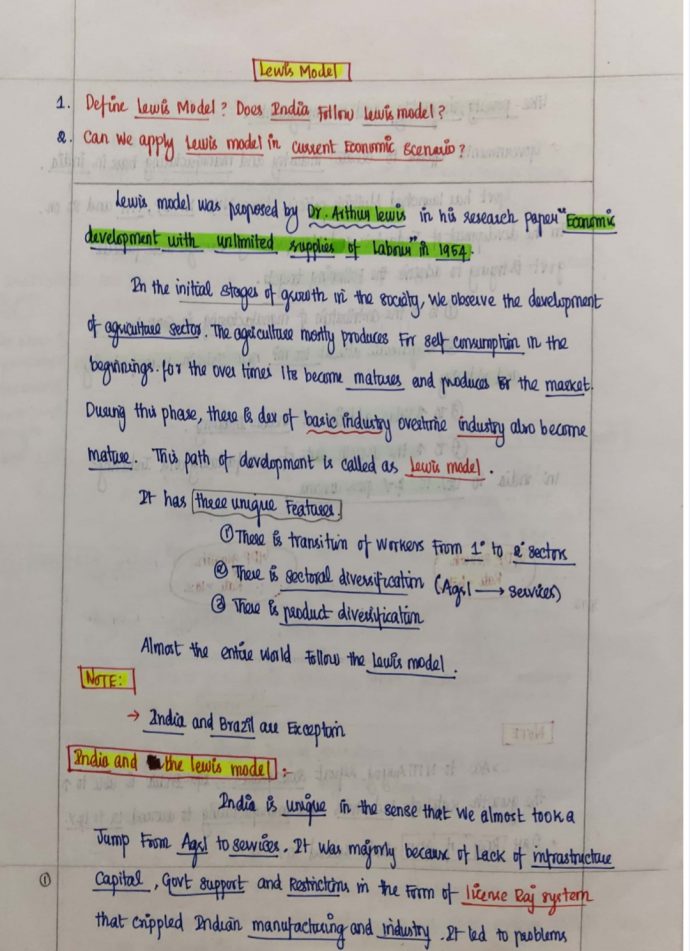 Lewis Model
1. Define Lewis Model? Does India Follow Lewis model?
2. Can we apply Lewis model in current Economic scenario?
Lewis model was proposed by Dr. Arthur Lewis in his research paper "Economic
development with unlimited supplies of Labour" in 1954.
In the initial stages of growth in the society, We observe the development
of agriculture sector. The agriculture mostly produces For self consumption in the
beginnings. for the over times Its become matures and produces for the market.
During this phase, there is dev of basic industry overtime industry also become
mature. This path of development is called as Lewis model.
It has three unique Features.
① There is transition of Workers From 1° to 2° sectors
② There is sectoral diversification (Agrl → Services)
③ There is product diversification
Almost the entire World Follow the Lewis model.
NOTE:
→ India and Brazil are Exception
India and the Lewis model :-
India is unique in the sense that We almost took a
Jump From Agrl to services. It was majorly because of Lack of infrastructure
① Capital, Govt support and Restrictions in the Form of license Raj system
that crippled Indian manufacturing and industry. It led to problems